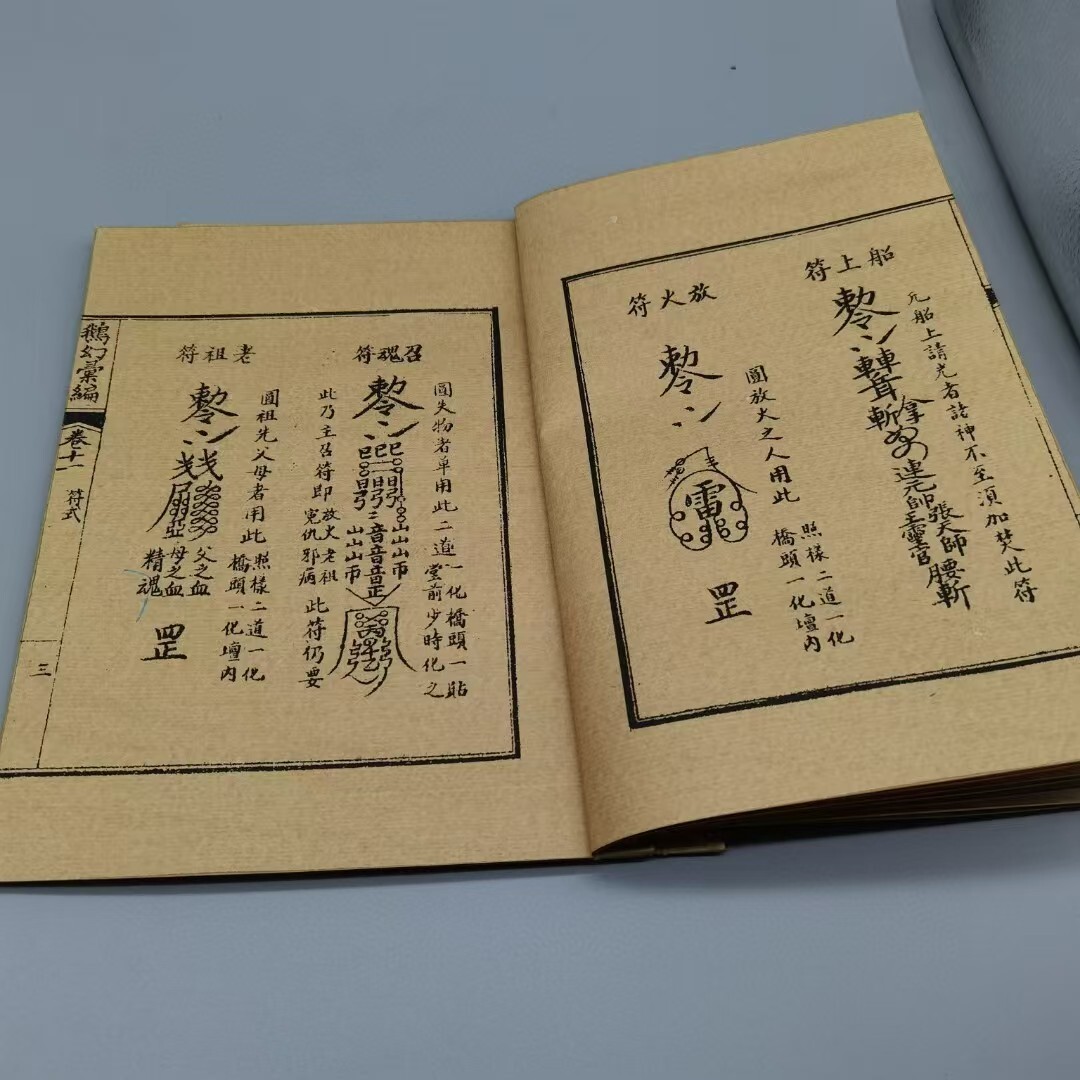 船上符
凡船上請光者諸神不至須加焚此符
連元帥王靈官
張天師
腰斬
放火符
圓放火之人用此
照樣二道一化橋頭一化壇內
雷
罡
召魂符
圓失物者單用此二道一化橋頭一貼堂前少時化之
此乃主召符即放火老祖冤仇邪病此符仍要
老祖符
圓祖先父母者用此
照樣二道一化橋頭一化壇內
父之血
母之血
精魂
罡
鵝幻彙編
卷十一
符式
三